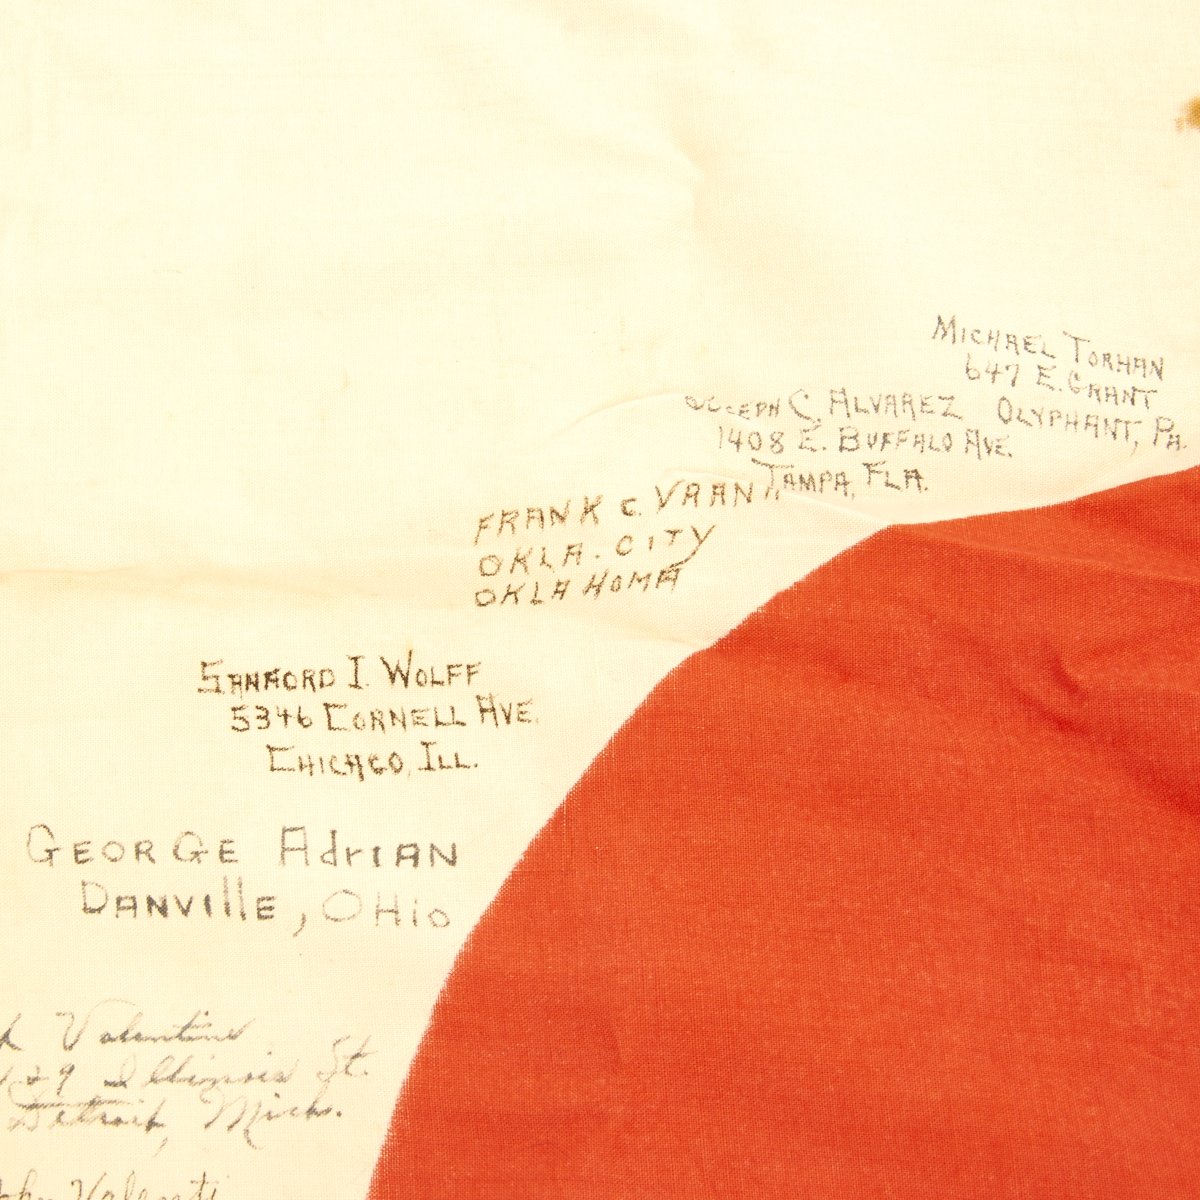 MICHAEL TORHAN
647 E. GRANT
OLYPHANT, PA.
JOSEPH C. ALVAREZ
1408 E. BUFFALO AVE.
TAMPA, FLA.
FRANK C. VRANA
OKLA. CITY
OKLAHOMA
SANFORD I. WOLFF
5346 CORNELL AVE.
CHICAGO, ILL.
GEORGE AdriAN
DANVillE, OHio
Valentine
Illinois St.
Detroit, Mich.
Valenti